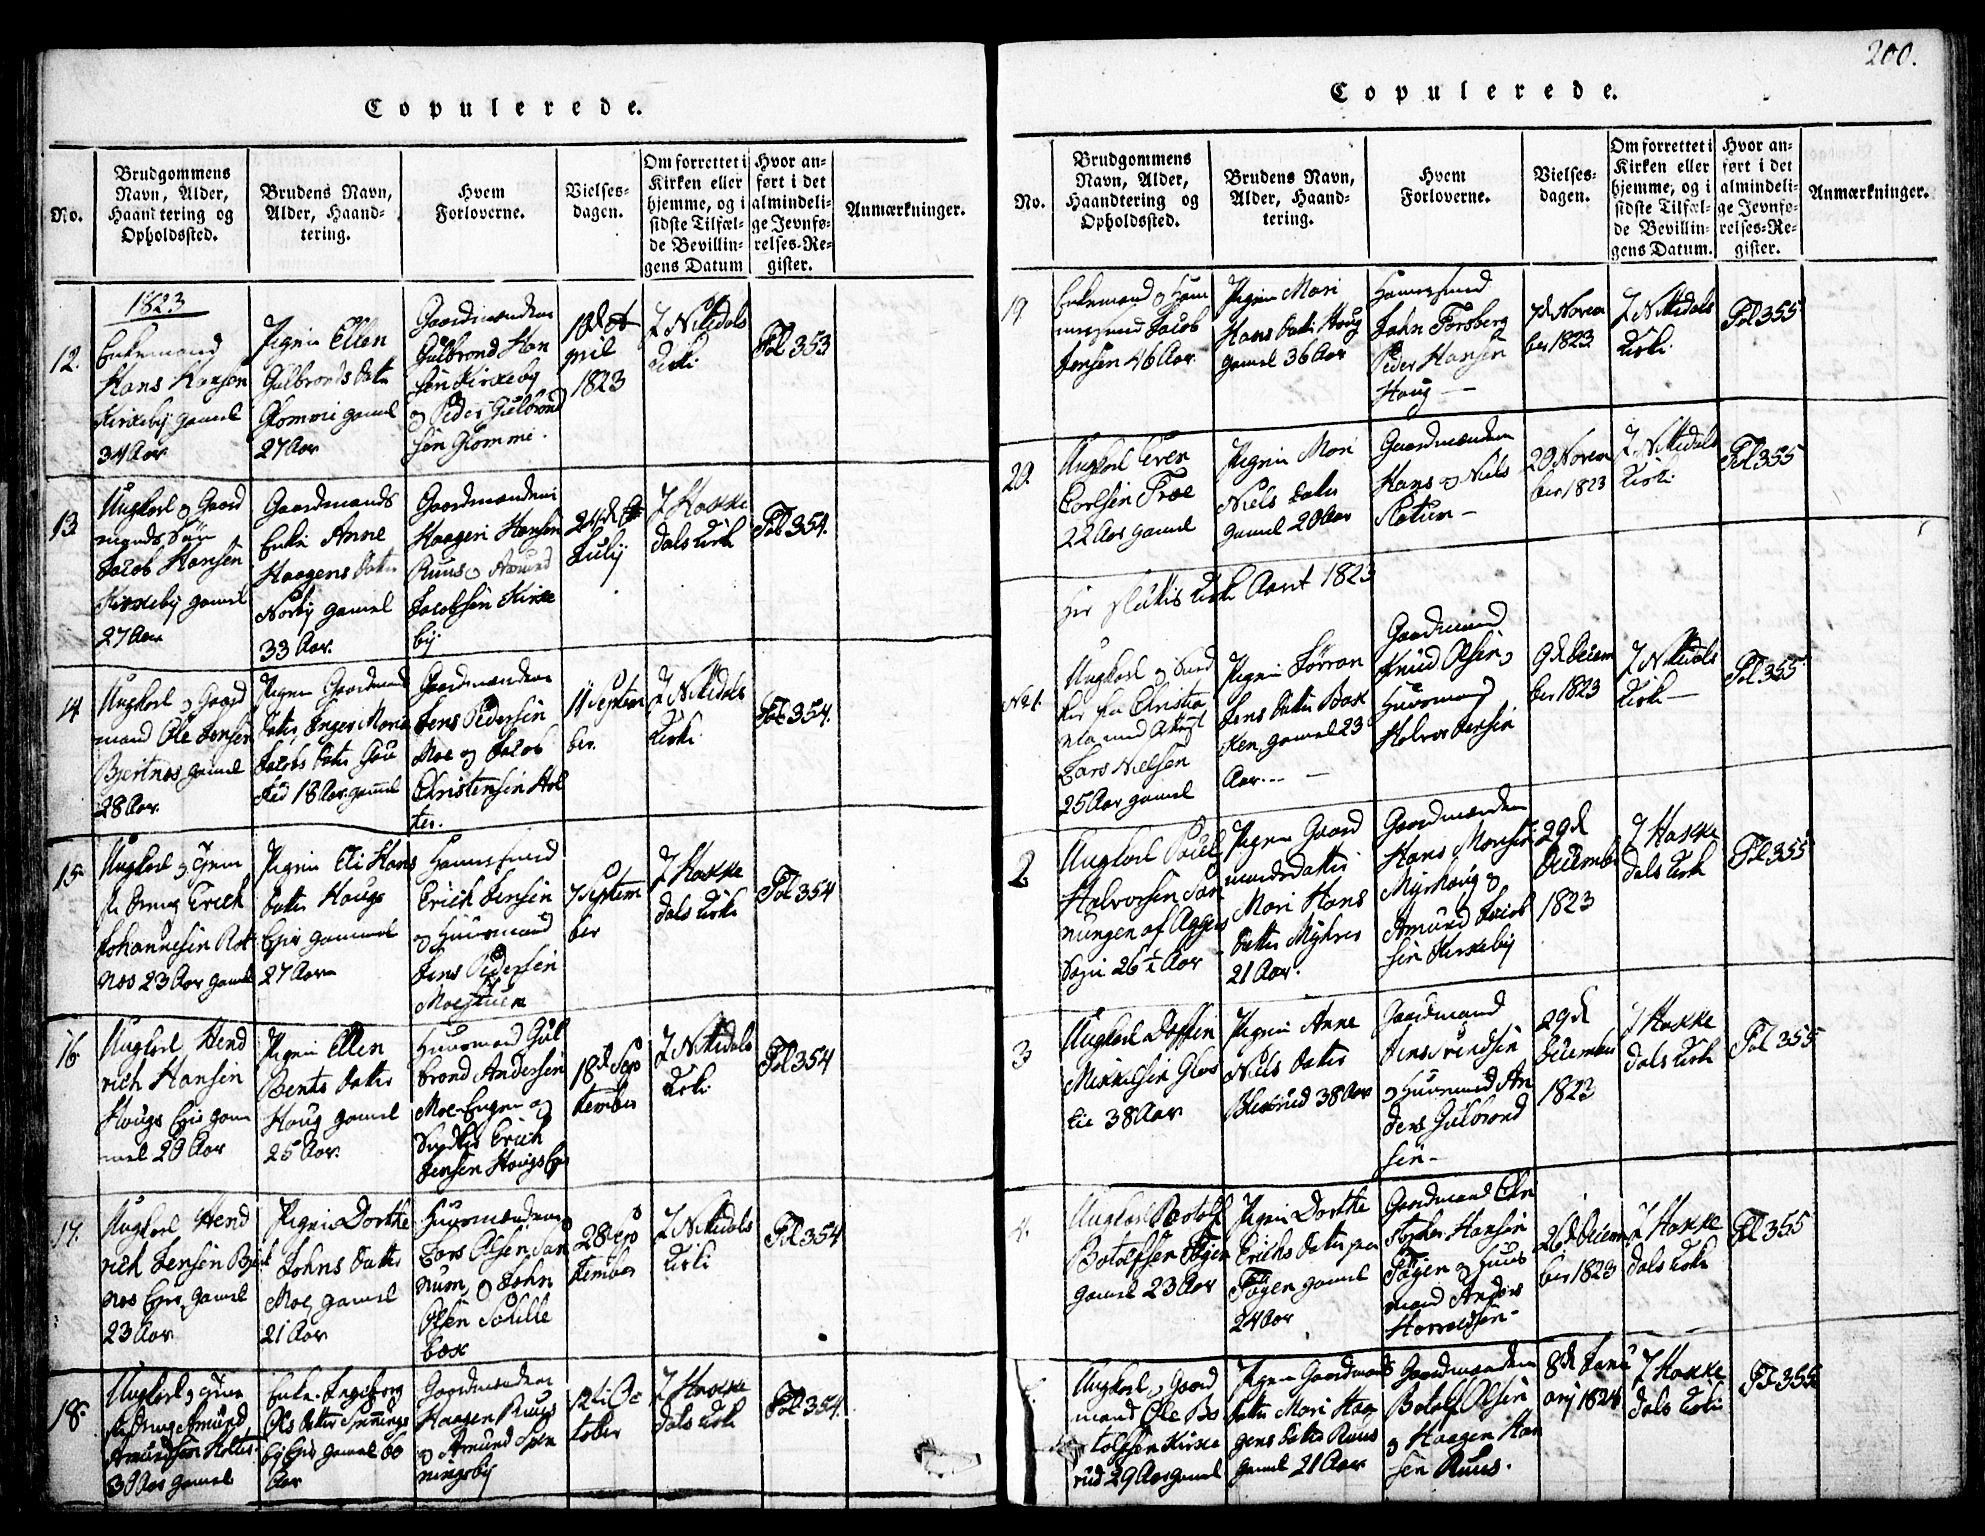 Copulerede.
No.
Brudgommens
Navn, Alder,
Haandtering og
Opholdssted.
Brudens Navn,
Alder, Haand-
tering.
Hvem
Forloverne.
Vielses-
dagen.
Om forrettet i
Kirken eller
hjemme, og i
sidste Tilfæl-
de Bevillin-
gens Datum
Hvor an-
ført i det
almindeli-
ge Jevnfø-
relses-Re-
gister.
Anmærkninger.
1823
12.
Enkemand
Hans Hansen
Kirkeby gamel
34 Aar
Pigen Ellen
Gulbrands Datter
Glomme gamel
27 Aar
Gaardmændene
Gulbrand Han
sen Kirkeby
og Peder Gulbrand
sen Glomme.
18de A
pril
1823
I Nitedals
Kirke
Fol 353
13.
Ungkarl og Gaard
mands Søn
Jacob Hansen
Kirkeby gamel
27 Aar
Gaardmands
Enke Anne
Haagens Datter
Norby gamel
33 Aar.
Gaardmændene
Haagen Hansen
Ruus og Amund
Jacobsen Kirke
by
24de
July
I Hakke
dals Kirke
Fol 354.
14
Ungkarl og Gaard
mand Ole Jensen
Bjertnes gamel
28 Aar.
Pigen Gaardmands
Datter Inger Marie
Jacobs Datter
18 Aar gamel
Gaardmændene
Jens Pedersen
Moe og Jacob
Christensen Hol
ter.
11 Septem
ber.
I Nitedals
Kirke
Fol 354.
15.
Ungkarl og
Erich
Johannesen Rot
nes 23 Aar gamel
Pigen Eli Hans
Datter Hougs
Eje gammel
27 Aar
Huusmand
Erich Jensen
og Huusmand
Jens Pedersen
Moestuen
7 Septem
ber
I Hakke
dals Kirke
Fol 354
16
Ungkarl Hend
rich Hansen
Hougs Eje gam
mel 29 Aar
Pigen Ellen
Bents Datter
Houg gamel
25 Aar.
Huusmand Gul
brand Andersen
Moe Engen og
Erich
Jensen Hougs Eje
18de Sep
tember
I Nitedals
Kirke
Fol 354
17.
Ungkarl Hend
rich Jensen Bjert
nes Eje gamel
23 Aar
Pigen Dorthe
Johns Datter
Moe gamel
21 Aar
Huusmændene
Lars Olsen
og John
Olsen Skille
bæk
28 Sep
tember
I Nitedals
Kirke
Fol 354
18.
Ungkarl og
Amund
Amundsen Holter
3 Aar gamel
Enke Ingeborg
Ols Datter Spenings
by Eje gamel 60
Aar
Gaardmændene
Haagen Ruus
og Amund Spen
ningsby
12te Oc
tober
I Hakke
dals Kirke
Fol 354.
200.
Copulerede.
No.
Brudgommens
Navn, Alder,
Haandtering og
Opholdssted.
Brudens Navn,
Alder, Haand-
tering.
Hvem
Forloverne.
Vielses-
dagen.
Om forrettet i
Kirken eller
hjemme, og i
sidste Tilfæl-
de Bevillin-
gens Datum.
Hvor an-
ført i det
almindeli-
ge Jevnfø-
relses-Re-
gister.
Anmærkninger.
19
Enkemand og Ham
mersmed Jacob
Jensen 46 Aar.
Pigen Mari
Hans Datter Houg
gamel 36 Aar
Hammersmed
John Forsberg
Peder Hansen
Houg
7de Novem
ber 1823
I Nittedals
Kirke
Fol 355
20.
Ungkarl Even
Carlsen Froe
22 Aar gamel
Pigen Mari
Niels Datter
gamel 20 Aar
Gaardmændene
Hans og Niels
Slatum
29 Novem
ber 1823
I Nittedals
Kirke
Fol 355
Her sluttes Kirke Aaret 1823
No 1.
Ungkarl og Snid
ker fra Christia
nia med Attest
Lars Nielsen
25 Aar gamel
Pigen Jørran
Jens Datter Bak
ken gamel 23
Aar.
Gaardmand
Knud Olsen og
Huusmand
Halvor Jensen
9de Decem
ber 1823
I Nitedals
Kirke
Fol 355
2
Ungkarl Poul
Halvorsen
af Aggers
Sogn 26½ Aar
Pigen Gaard
mandsdatter
Mari Hans
Datter Myhrer
21 Aar.
Gaardmændene
Hans Monsen
Myrhaug og
Amund Jacob
sen Kirkeby
29de
December
1823
I Hakke
dals Kirke
Fol 355
3
Ungkarl Joffen
Mikkelsen Glas
lie 38 Aar
Pigen Anne
Niels Datter
38 Aar
Gaardmand
Jens Svendsen
og Huusmand An
ders Gulbrand
sen
29de
December
1823
I Hakke
dals Kirke
Fol 355
4.
Ungkarl Botolf
Botolfsen Føyen
gamel 23 Aar
Pigen Dorthe
Erichs Datter fra
Føyen gamel
24 Aar
Gaardmand Chri
stopher Hansen
Føyen og Huus
mand Anders
Haraldsen
26de Decem
ber 1823
I Hakke
dals Kirke
Fol 355
Ungkarl og Gaard
mand Ole Bo
tolfsen Kirke
rud 29 Aar gamel
Pigen Gaardmands
Datter Mari Haa
gens Datter Ruus
gamel 21 Aar
Gaardmændene
Botolf Olsen
og Haagen Han
sen Ruus.
8de Janu
arj 1824
I Hakke
dals Kirke
Fol 355